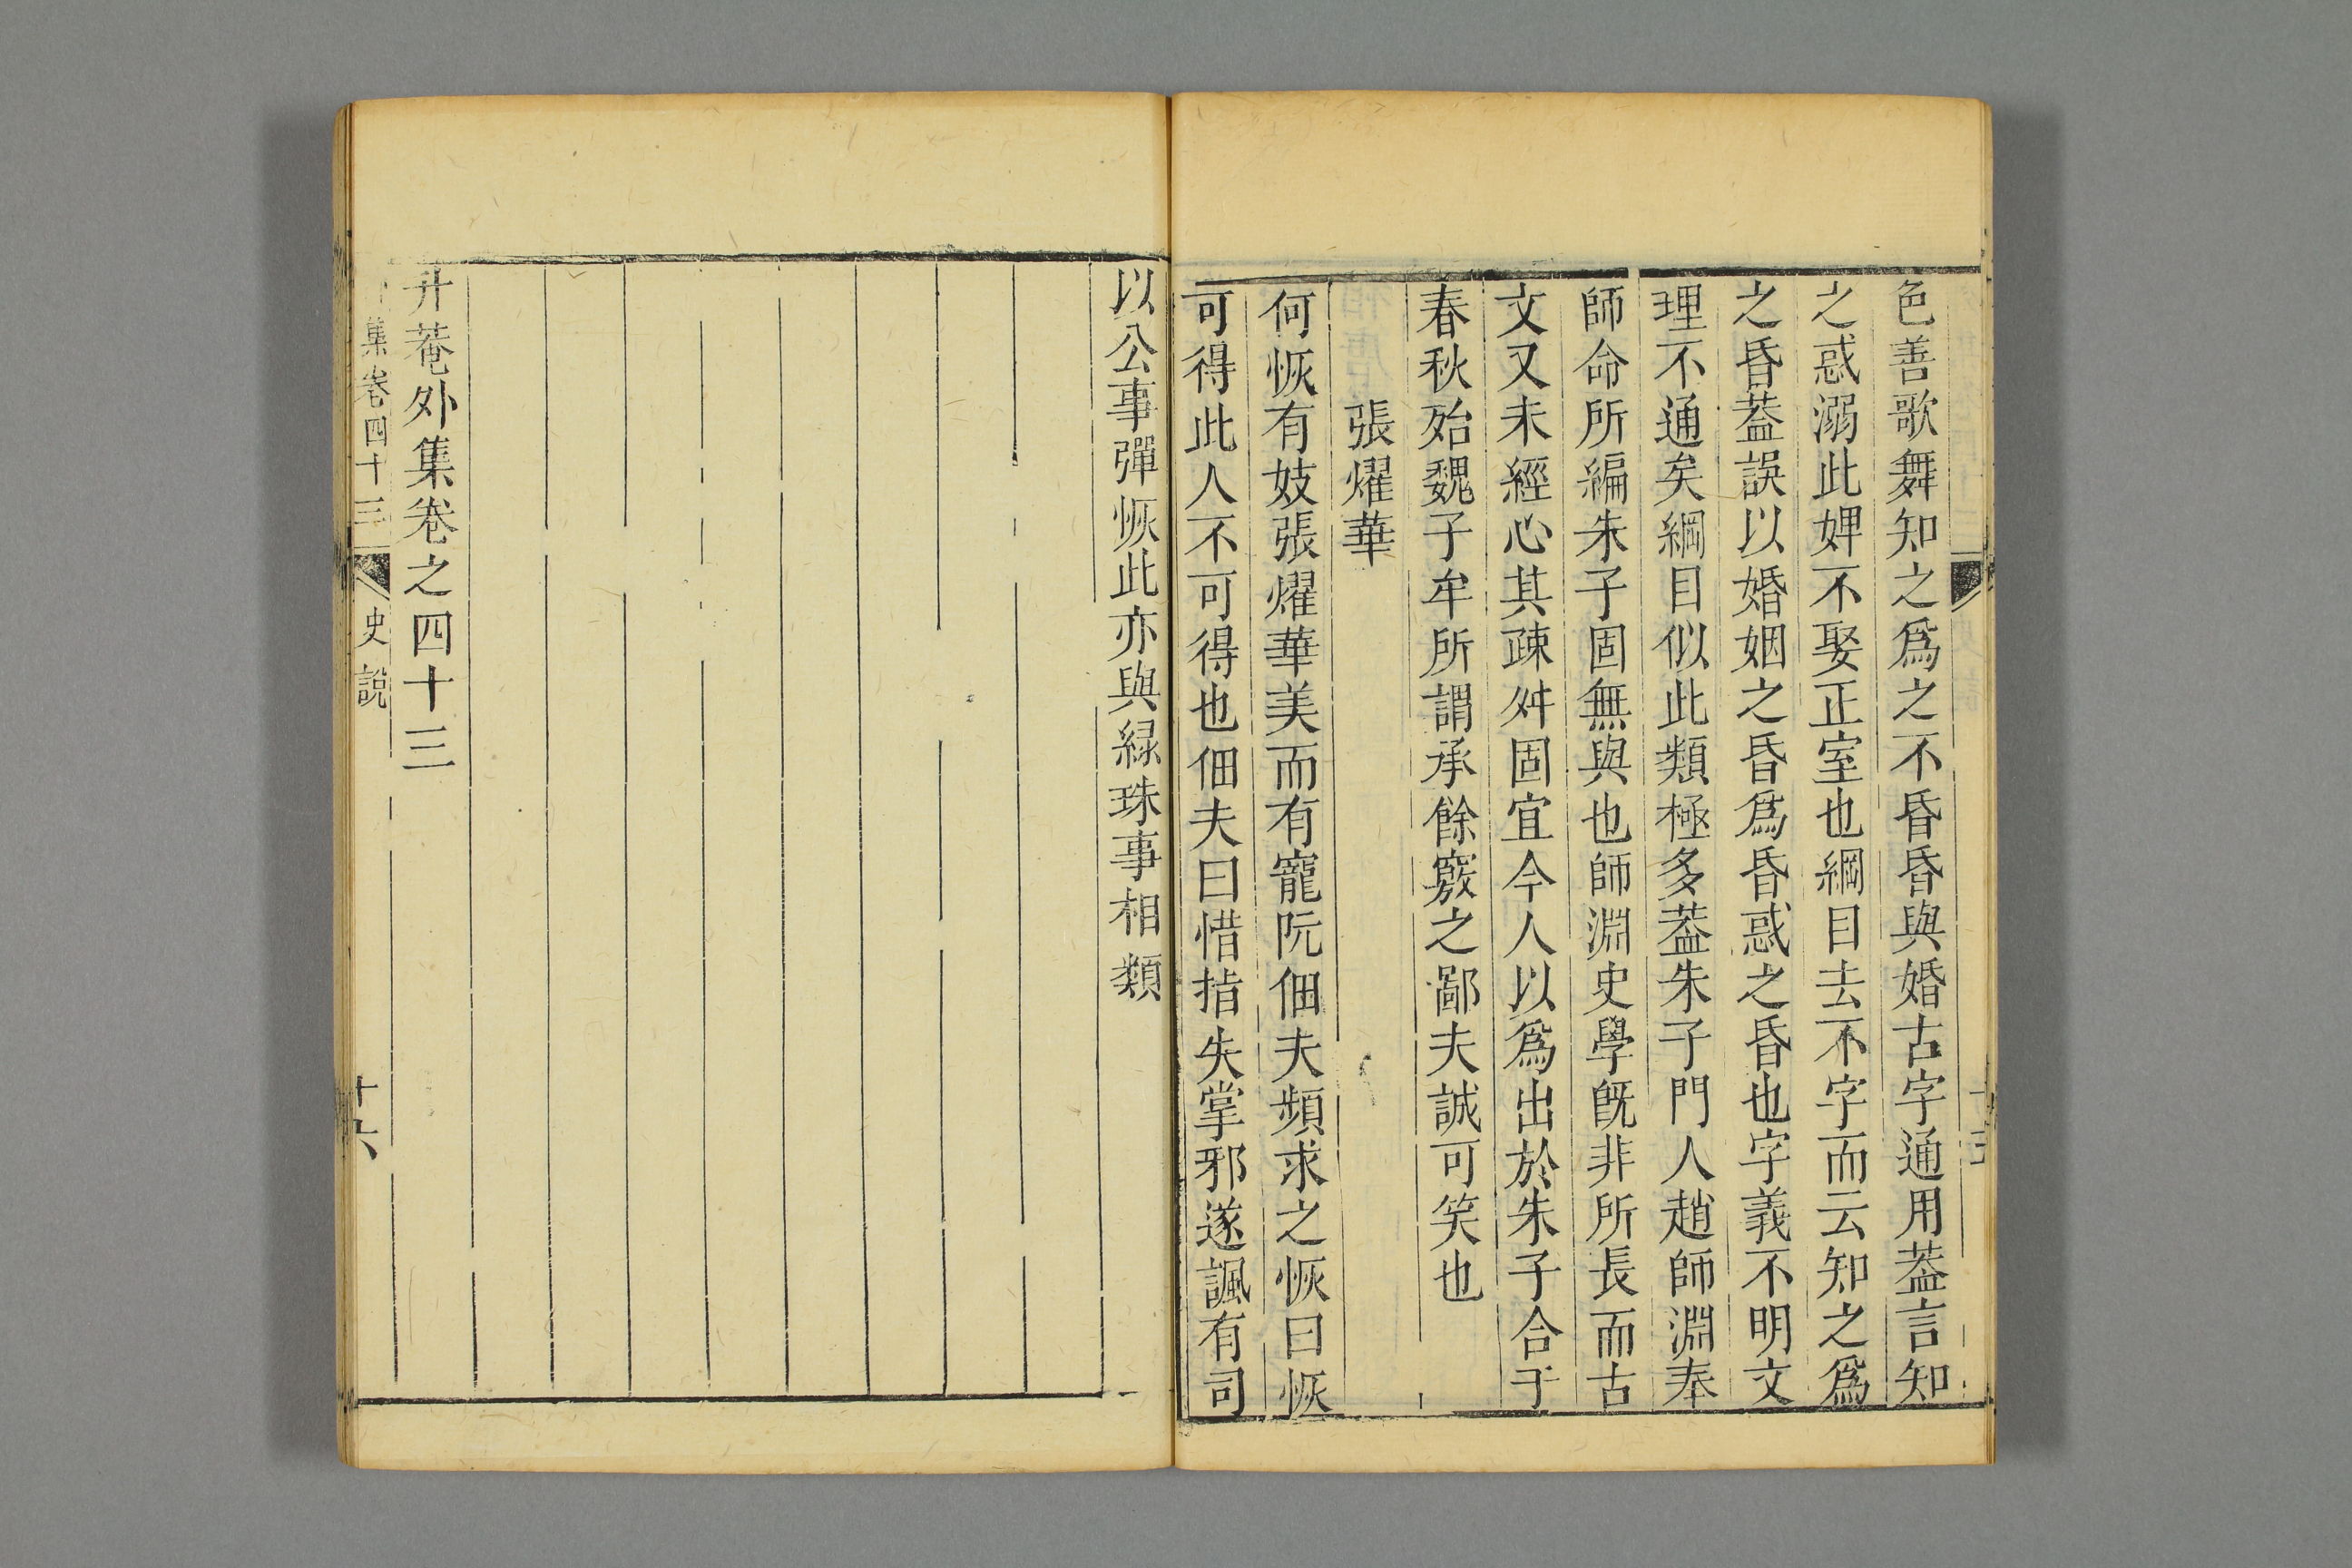 色善歌舞知之爲之不昏昏與婚古字通用葢言知
之惑溺此婢不娶正室也綱目去不字而云知之爲
之昏葢誤以婚姻之昏爲昏惑之昏也字義不明文
理不通矣綱目似此類極多葢朱子門人趙師淵奉
師命所編朱子固無與也師淵史學旣非所長而古
文又未經心其疎舛固宜今人以爲出於朱子合于
春秋殆魏子牟所謂承餘竅之鄙夫誠可笑也
張燿華
何恢有妓張燿華美而有寵阮佃夫頻求之恢曰恢
可得此人不可得也佃夫曰惜指失掌邪遂諷有司
以公事彈恢此亦與緑珠事相類
升菴外集卷之四十三
集卷四十三 史說 十六